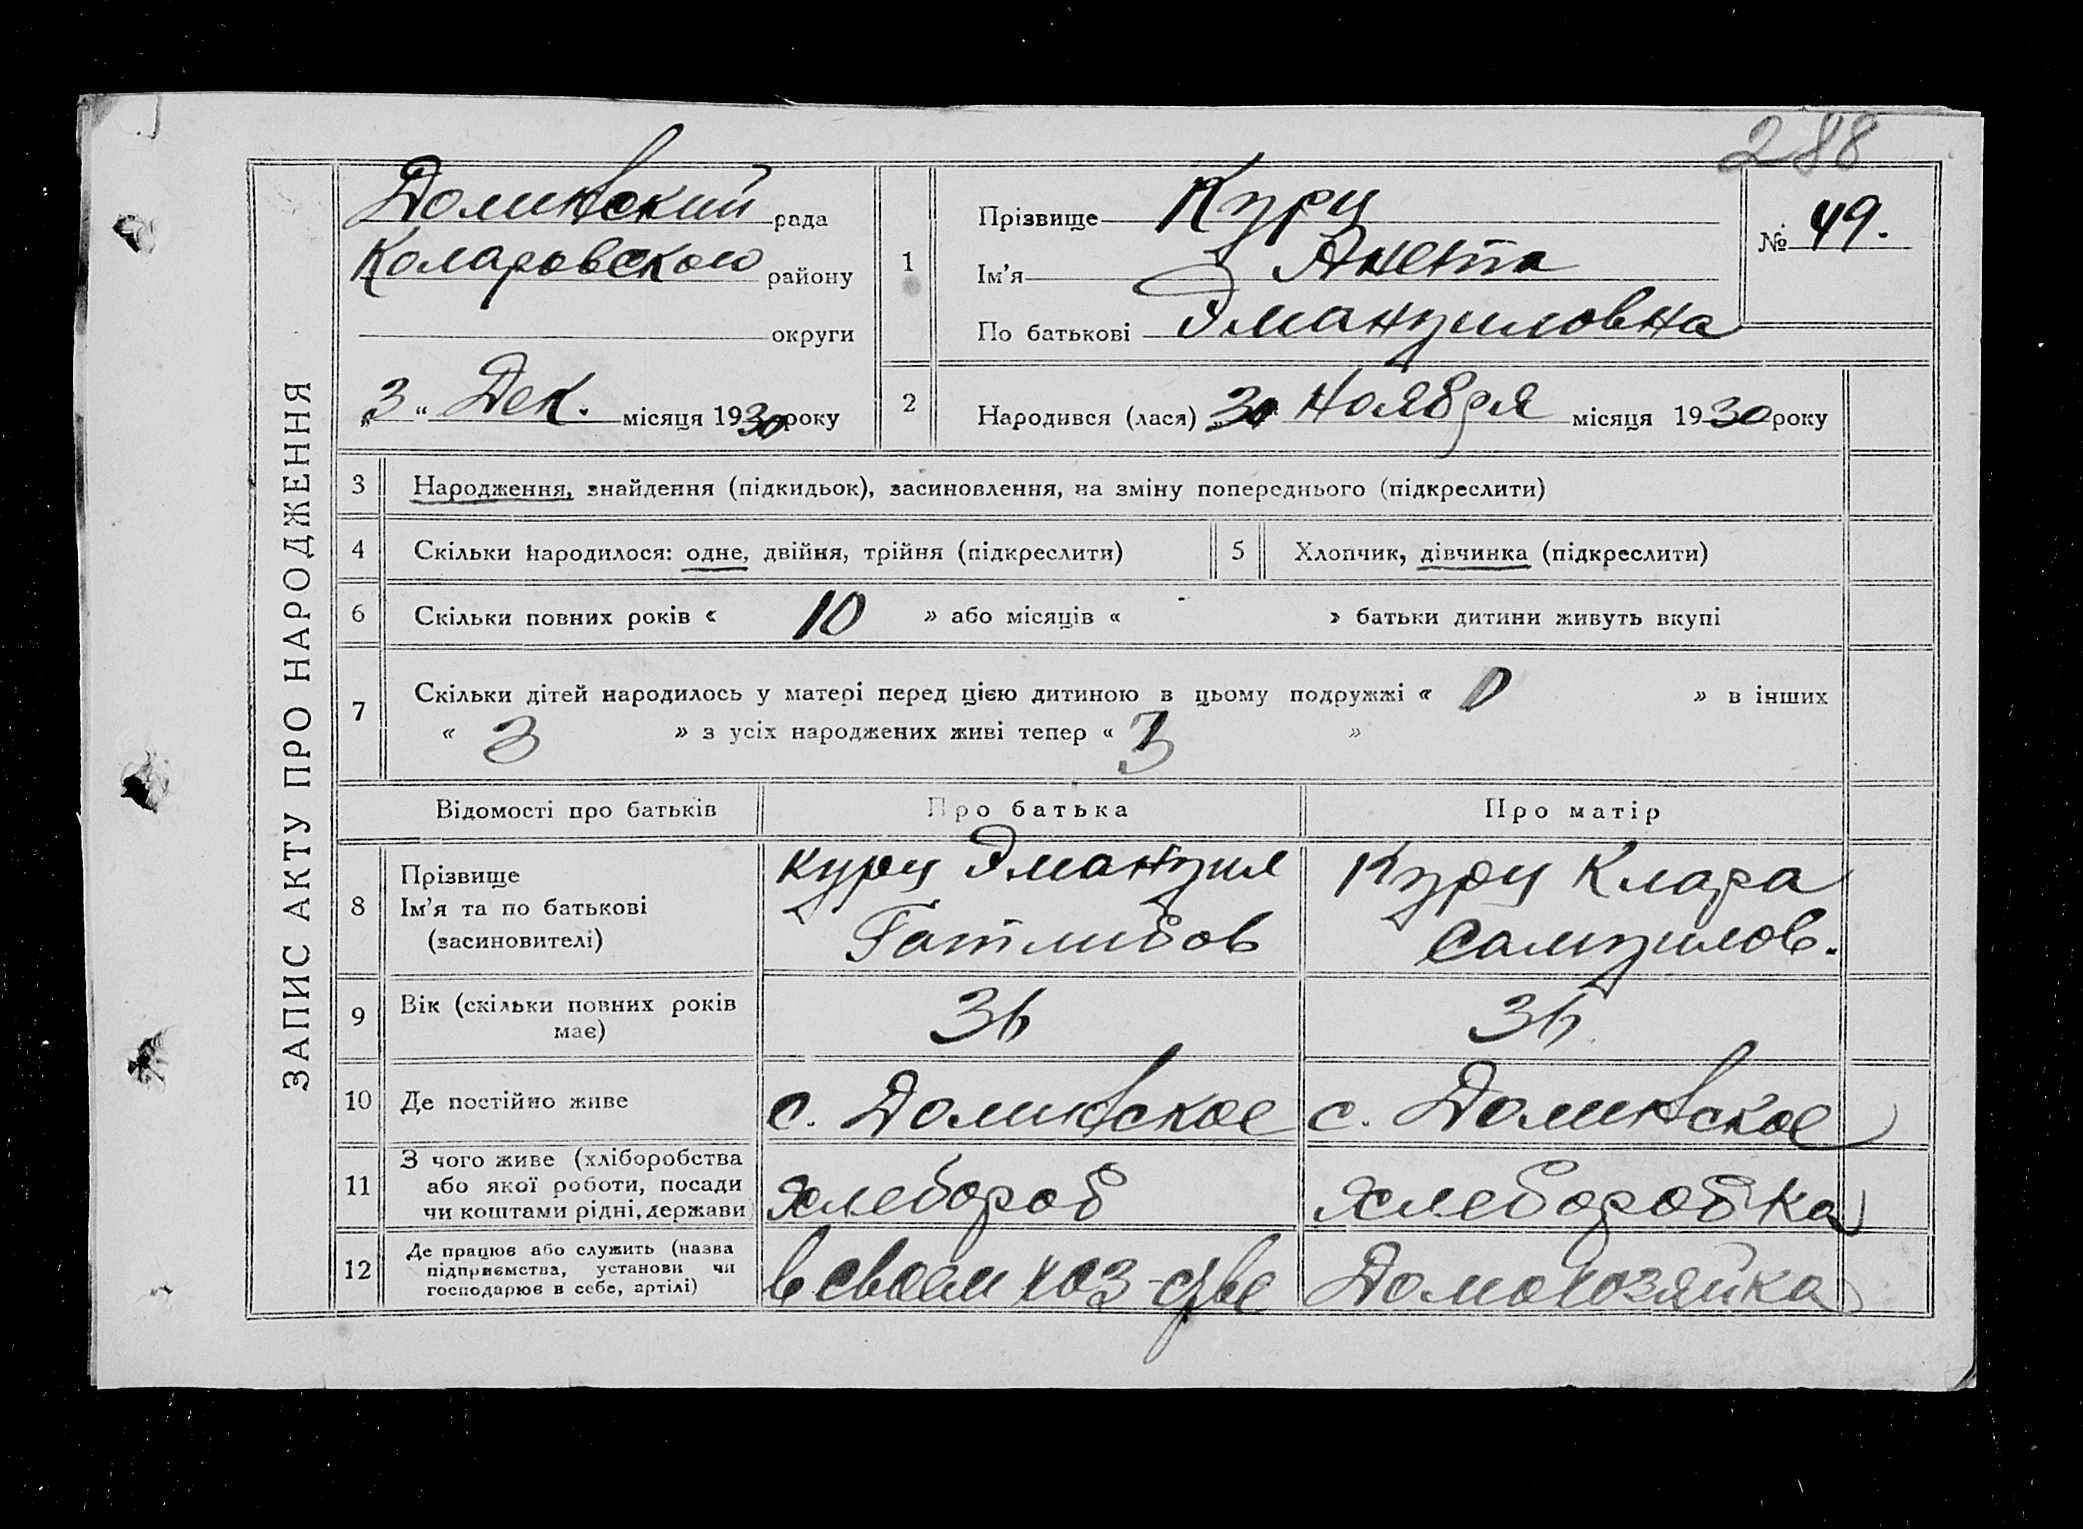 288
ЗАПИС АКТУ ПРО НАРОДЖЕННЯ
Долинский рада
Коларовского району
округи
„3“ Дек. місяця 1930 року
1
Прізвище Курц
Ім’я Анета
По батькові Эмануиловна
№ 49.
2 Народився (лася) „30“ Ноября місяця 1930 року
3 Народження, знайдення (підкидьок), засиновлення, на зміну попереднього (підкреслити)
4 Скільки народилося: одне, двійня, трійня (підкреслити)
5 Хлопчик, дівчинка (підкреслити)
6 Скільки повних років « 10 » або місяців « - » батьки дитини живуть вкупі
7 Скільки дітей народилось у матері перед цією дитиною в цьому подружжі « 0 » в інших
« 3 » з усіх народжених живі тепер « 3 »
Відомості про батьків Про батька Про матір
8
Прізвище
Ім’я та по батькові
(засиновителі)
Курц Эмануил
Готлибов
Курц Клара
Самуилов.
9
Вік (скільки повних років
має)
36
36
10 Де постійно живе
с. Долинское
с. Долинское
11
З чого живе (хліборобства
або якої роботи, посади
чи коштами рідні, держави)
Хлебороб
Хлеборобка
12
Де працює або служить (назва
підприємства, установи чи
господарює в себе, артілі)
в своем хоз-стве
Домохозяйка